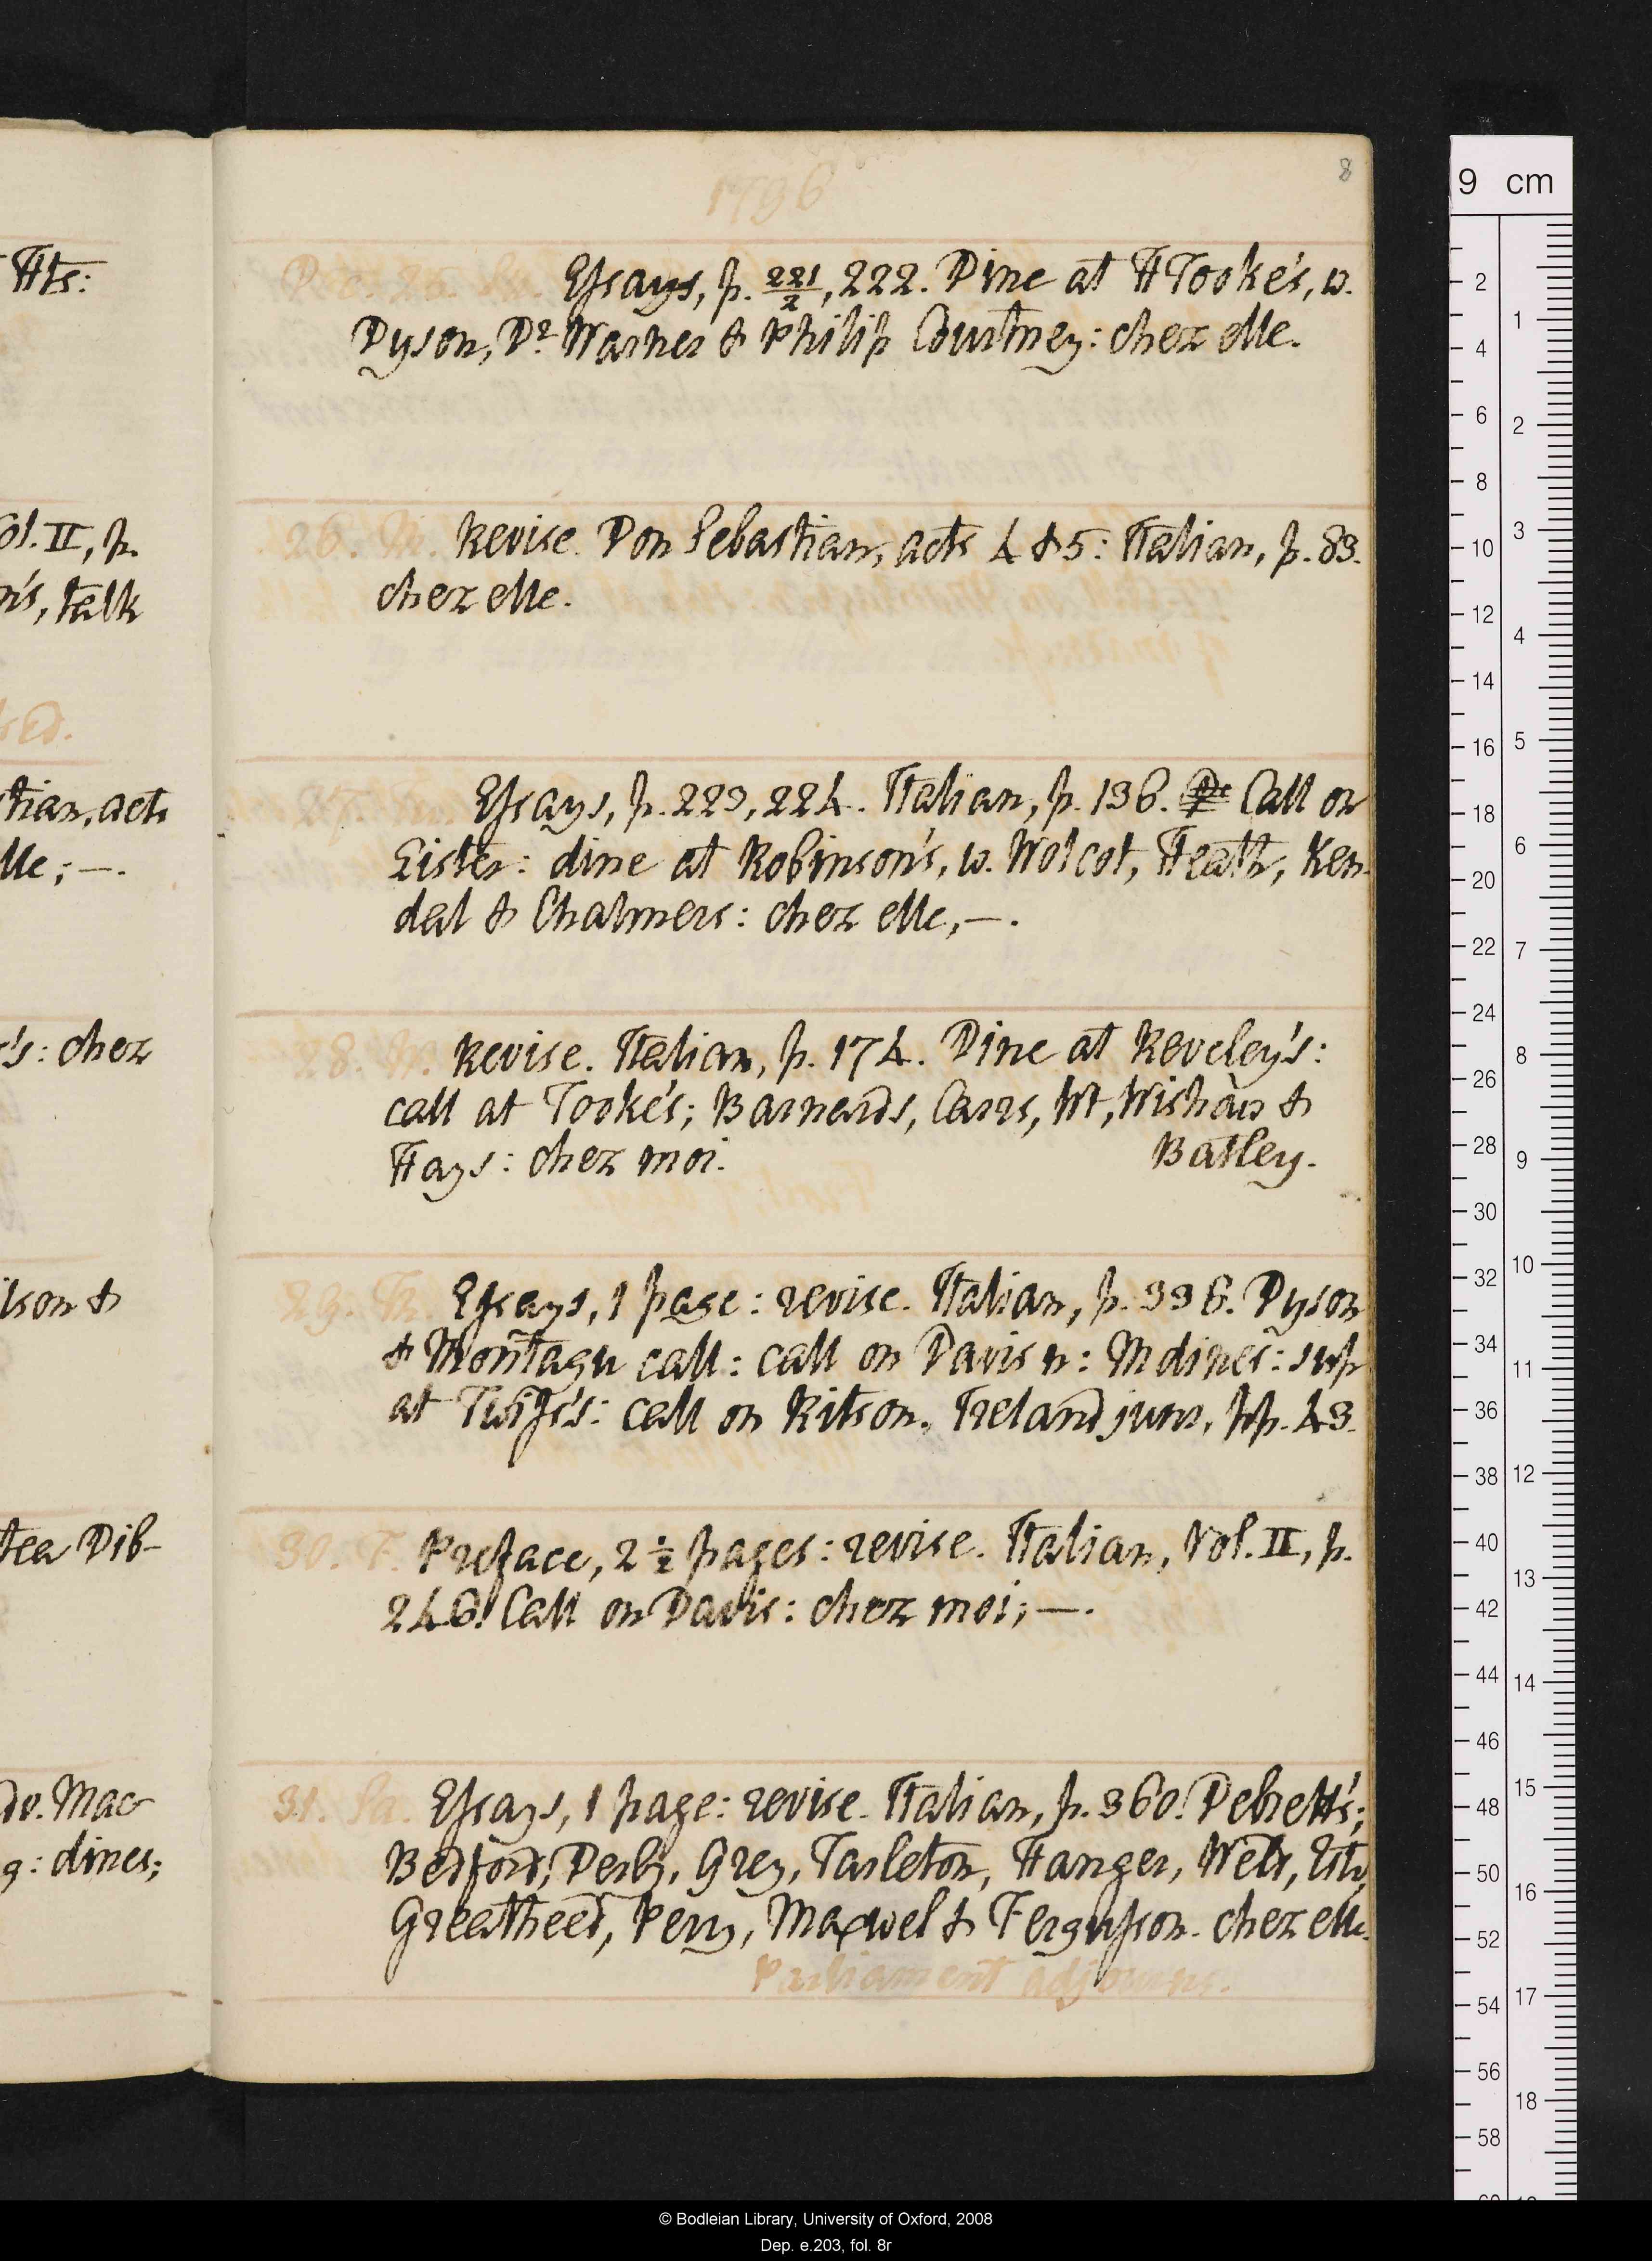 8
1796
Hts:
Dec. 25. Su. Essays, p. 221/2, 222. Dine at H Tooke's, w.
Dyson, Dr. Warner & Philip Courtney: chez elle.
ol. II, p.
n's, talk
26. M. Revise. Don Sebastian, acts 4 & 5: Italian, p. 83.
chez elle.
tian, acts
lle; —.
27. Tu. Essays, p. 223, 224. Italian, p. 136. Call on
Sister: dine at Robinson's, w. Wolcot, Heath, Ken-
dal & Chalmers: chez elle, —.
's: chez
28. W. Revise. Italian, p. 174. Dine at Reveley's:
call at Tooke's; Barnards, Carrs, Wt, Wishaw &
Hays: chez moi. Batley.
ilson &
29. Th. Essays, 1 page: revise. Italian, p. 336. Dyson
& Montagu call: call on Davis n: M dines: sup
at Twiss's: call on Ritson. Ireland junr, pp. 43.
tea Dib-
30. F. Preface, 2 1/2 pages: revise. Italian, Vol. II, p.
246. Call on Davis: chez moi; —.
dv. Mac
g: dines;
31. Sa. Essays, 1 page: revise. Italian, p. 360. Debrett's;
Bedford, Derby, Grey, Tarleton, Hanger,
Greatheed, Perry, Maxwel & Fergusson. chez elle.
Parliament adjourns.
9 cm
2 4 6 8 10 12 14 16 18 20 22 24 26 28 30 32 34 36 38 40 42 44 46 48 50 52 54 56 58
1 2 3 4 5 6 7 8 9 10 11 12 13 14 15 16 17 18
© Bodleian Library, University of Oxford, 2008
Dep. e.203, fol. 8r